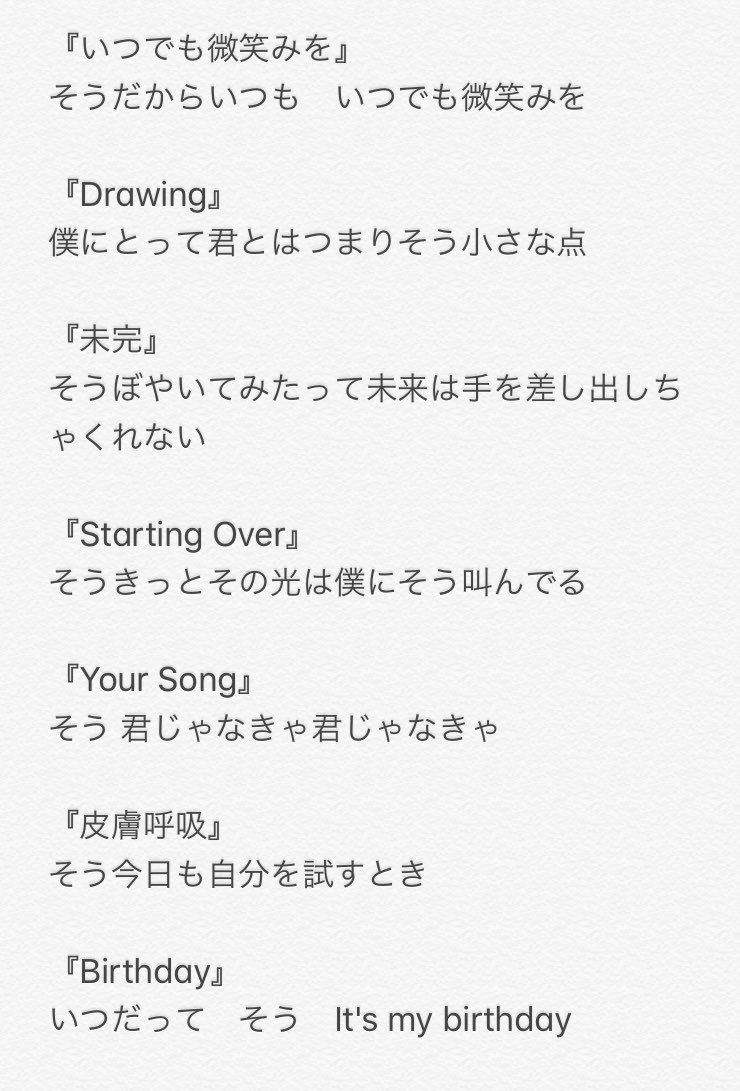 『いつでも微笑みを』
そうだからいつも　いつでも微笑みを
『Drawing』
僕にとって君とはつまりそう小さな点
『未完』
そうぼやいてみたって未来は手を差し出しち
ゃくれない
『Starting Over』
そうきっとその光は僕にそう叫んでる
『Your Song』
そう 君じゃなきゃ君じゃなきゃ
『皮膚呼吸』
そう今日も自分を試すとき
『Birthday』
いつだって　そう　It's my birthday